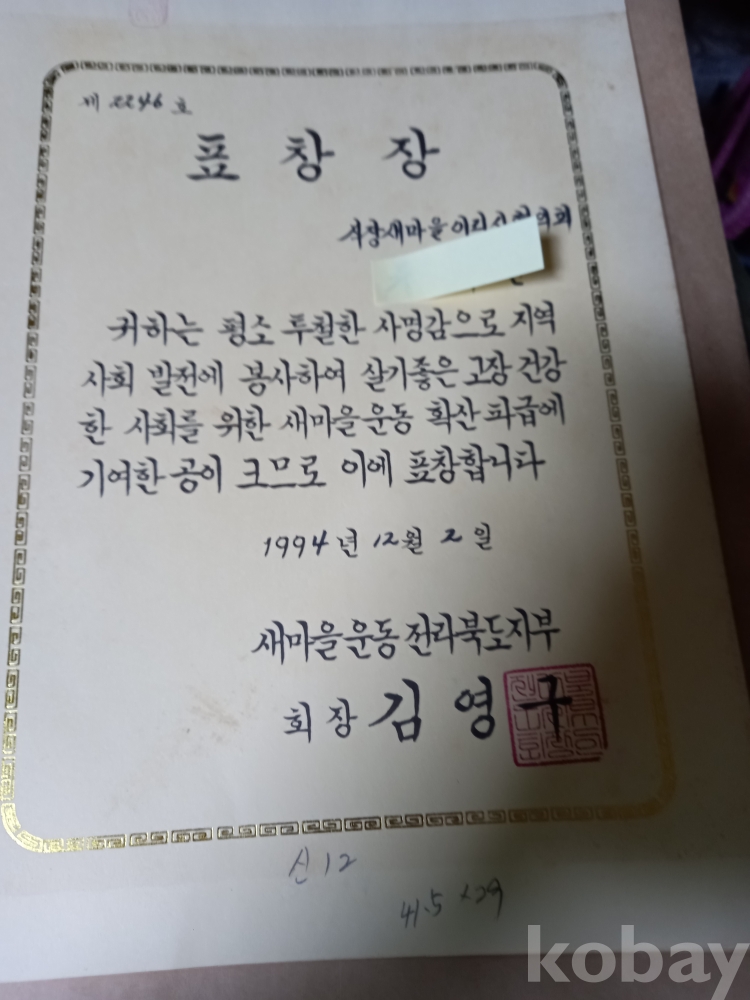 제 2246 호
표 창 장
직장새마을이리시협의회
귀하는 평소 투철한 사명감으로 지역
사회 발전에 봉사하여 살기좋은 고장 건강
한 사회를 위한 새마을운동 확산 파급에
기여한 공이 크므로 이에 표창합니다
1994년 12월 2일
새마을운동전라북도지부
회장 김영구
신12
41.5 × 29
kobay